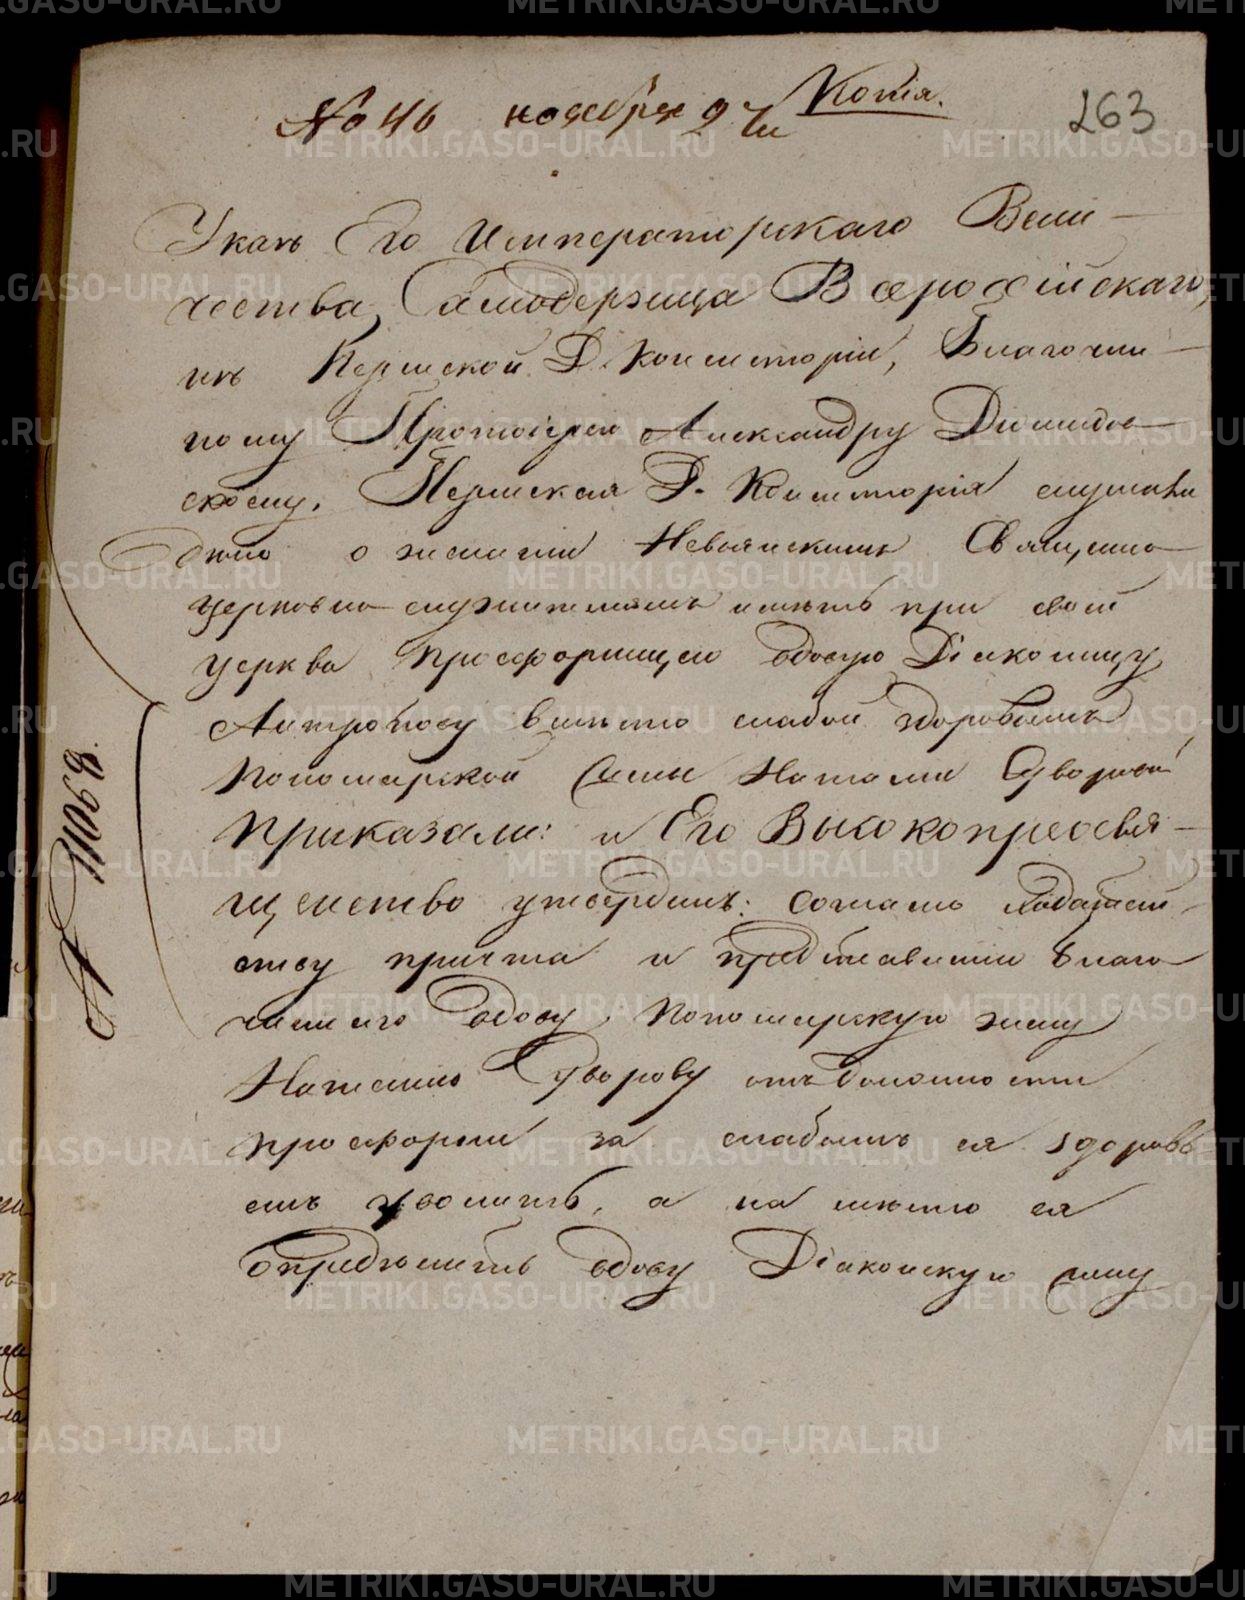 Копія.
№ 46 ноября 9 ч.
263
Указъ Его Императорскаго Вели-
чества, Самодержца Всероссійскаго,
изъ Пермской Д. Консисторіи, Благочин-
ному Протоіерею Александру Діомидов-
скому. Пермская Д. Консисторія слушали
дѣло о желаніи Невьянскихъ Священно-
церковно-служителей имѣть при своей
церкви просфорницею вдовую Діаконицу
Антропову вмѣсто слабой здоровьемъ
Пономарской жены Наталіи Суворовой
Приказали: и Его Высокопреосвя-
щенство утвердилъ: согласно ходатай-
ству причта и представленію Благо-
чиннаго вдову Пономарскую жену
Наталію Суворову отъ должности
просфорни за слабымъ ея здоровь-
емъ уволить, а на мѣсто ея
опредѣлить вдову Діаконскую жену
№ 11068.
METRIKI.GASO-URAL.RU